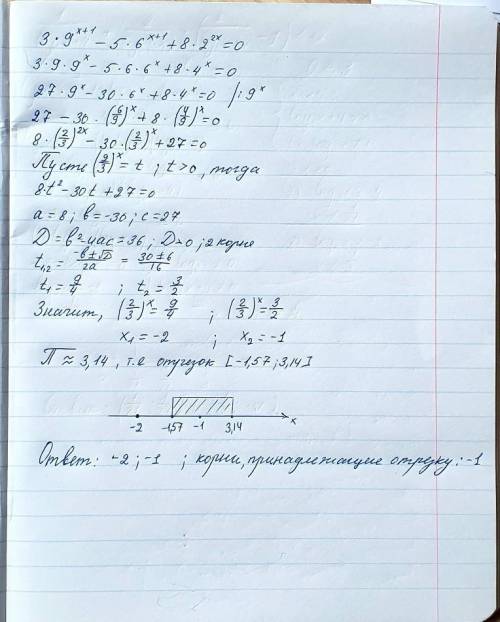 3·9^(x+1) − 5·6^(x+1) + 8·2^(2x) = 0
3·9·9^x − 5·6·6^x + 8·4^x = 0
27·9^x − 30·6^x + 8·4^x = 0 /:9^x
27 − 30·(6/9)^x + 8·(4/9)^x = 0
8·(2/3)^(2x) − 30·(2/3)^x + 27 = 0
Пусть (2/3)^x = t ; t>0, тогда
8t² − 30t + 27 = 0
a = 8 ; b = −30 ; c = 27
D = b² − 4ac = 36 ; D>0 ; 2 корня
t₁,₂ = (−b±√D)/2a = (30±6)/16
t₁ = 9/4 ; t₂ = 3/2
Значит, (2/3)^x = 9/4 ; (2/3)^x = 3/2
x₁ = −2 ; x₂ = −1
П ≈ 3,14 , т.е отрезок [−1,57 ; 3,14]
-2 -1,57 -1 3,14 x
Ответ: −2 ; −1 ; корни, принадлежащие отрезку: −1